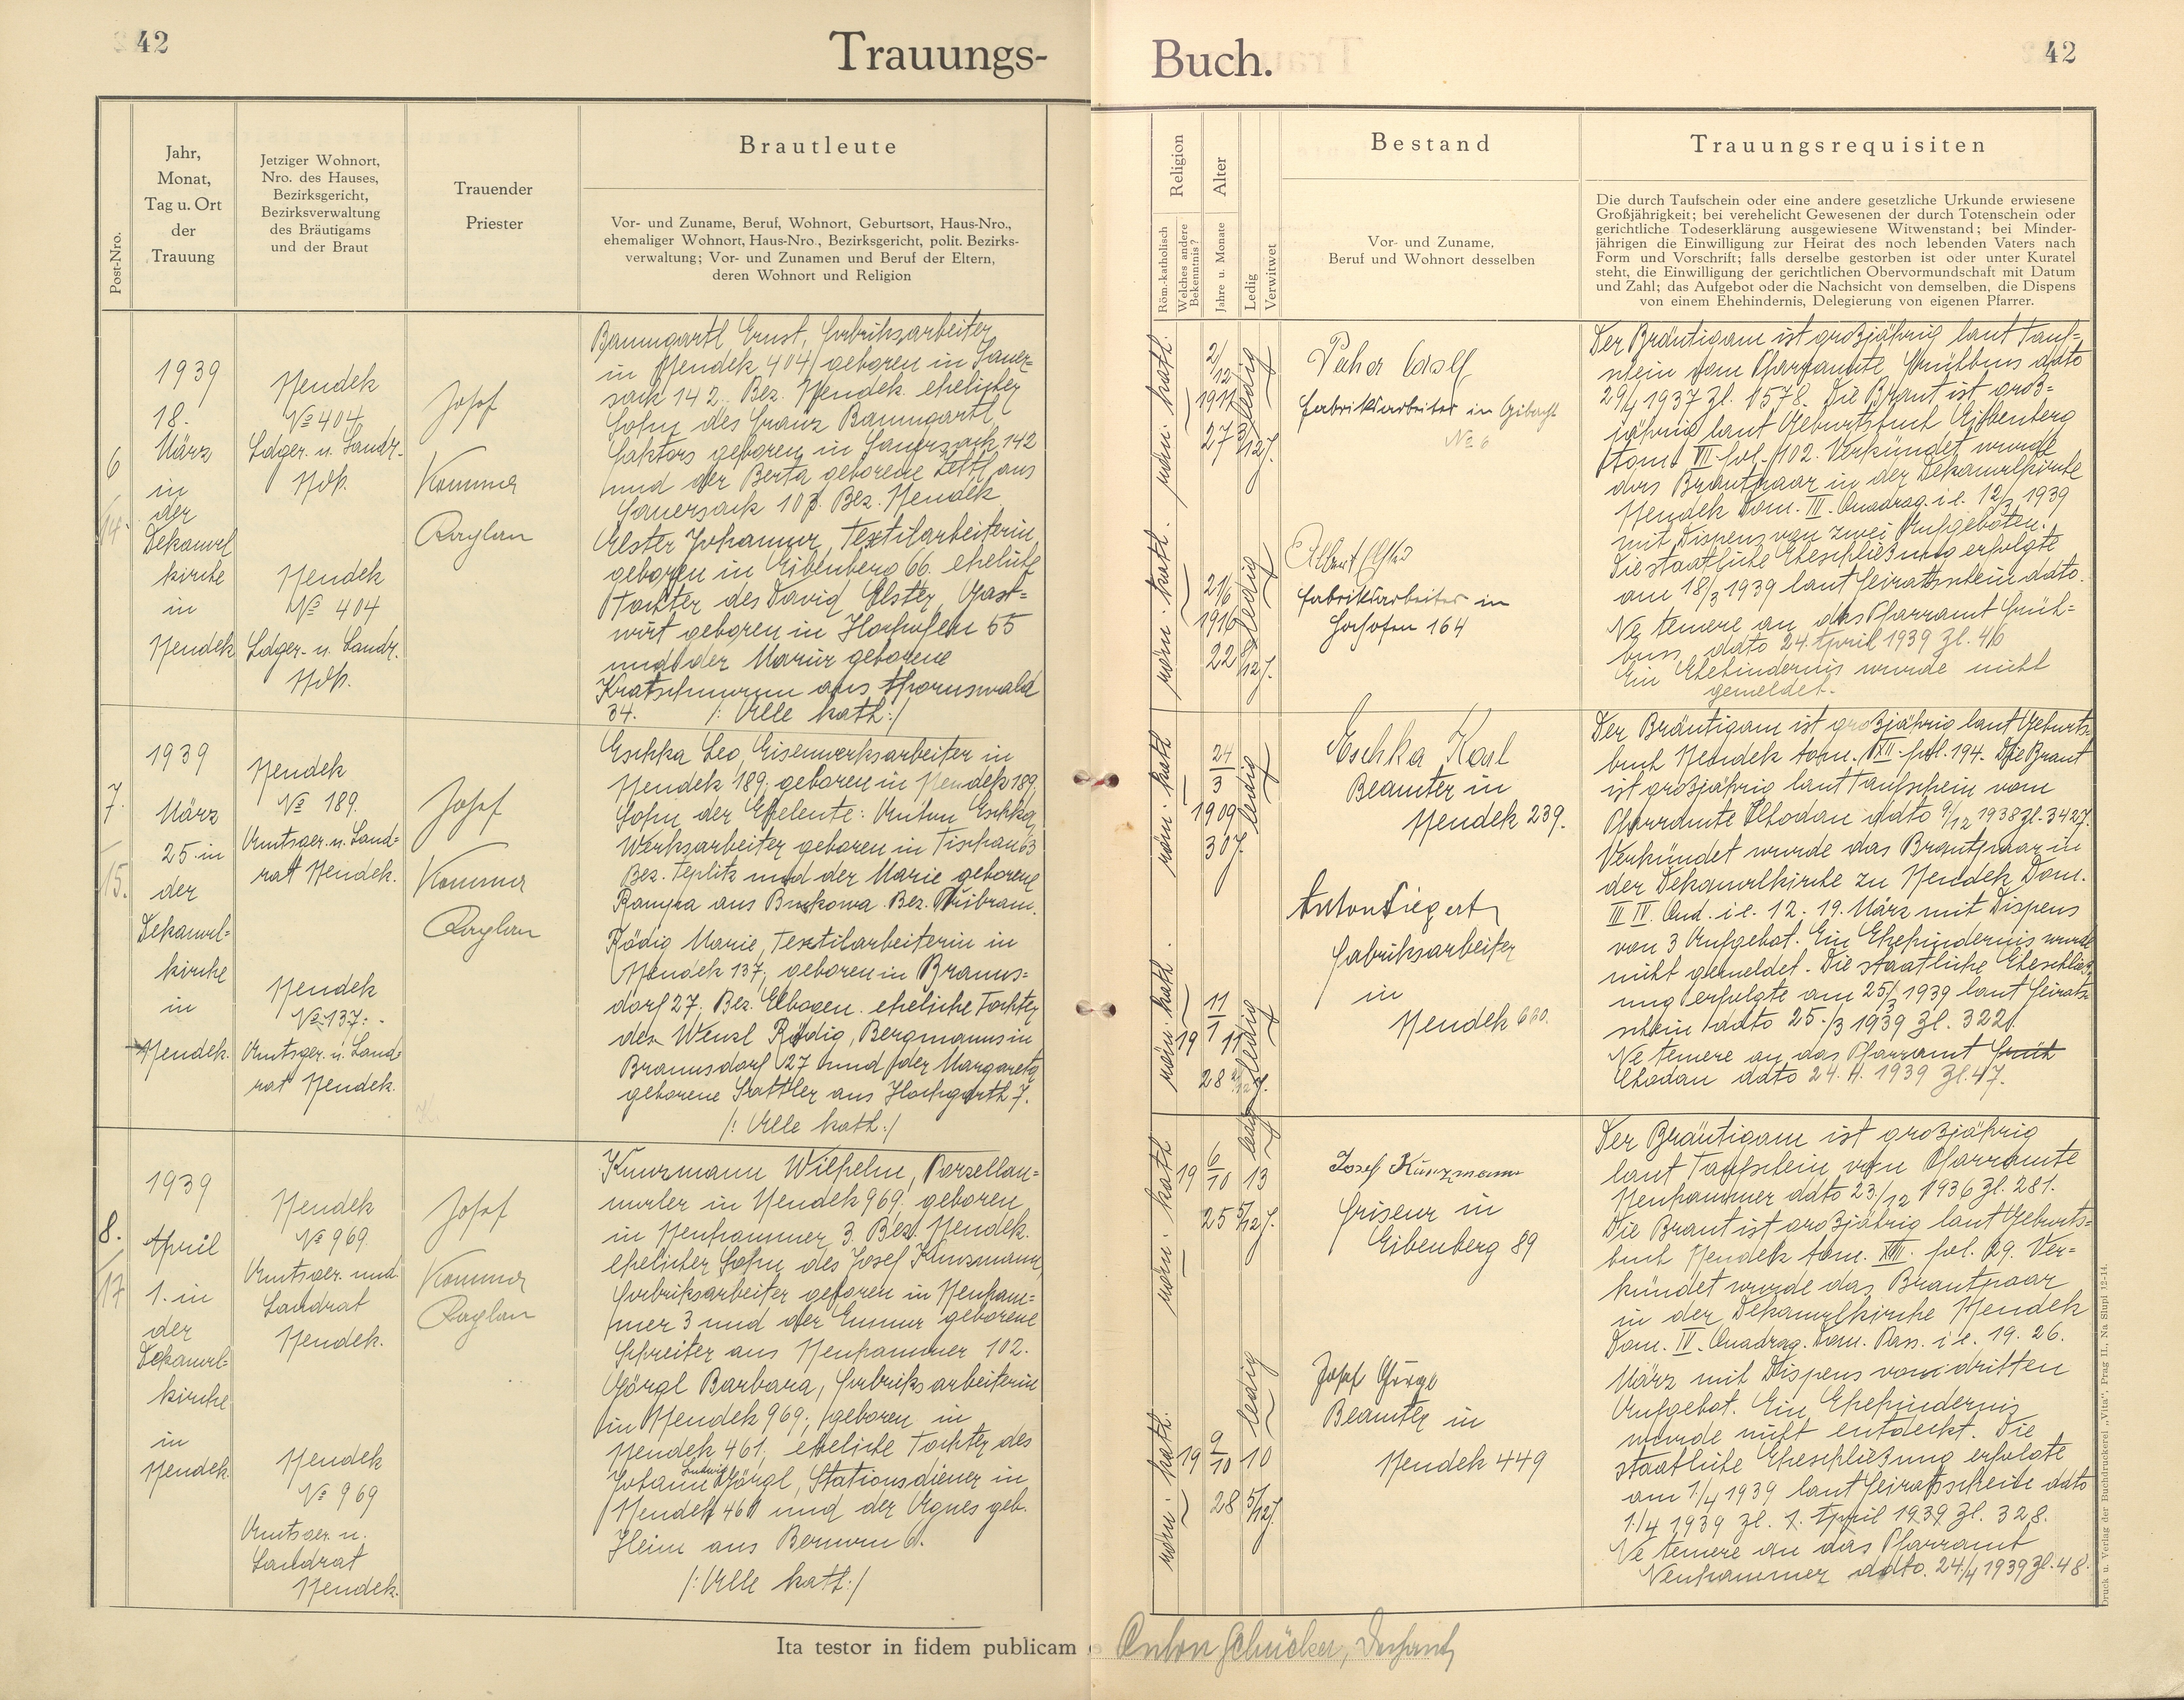 42
Trauungs-
Buch.
42
Post-Nro.
Jahr,
Monat,
Tag u. Ort
der
Trauung
Jetziger Wohnort,
Nro. des Hauses,
Bezirksgericht,
Bezirksverwaltung
des Bräutigams
und der Braut
Trauender
Priester
Brautleute
Vor- und Zuname, Beruf, Wohnort, Geburtsort, Haus-Nro.,
ehemaliger Wohnort, Haus-Nro., Bezirksgericht, polit. Bezirks-
verwaltung; Vor- und Zunamen und Beruf der Eltern,
deren Wohnort und Religion
Religion
Röm.-katholisch
Welches andere
Bekenntnis?
Alter
Jahre u. Monate
Ledig
Verwitwet
Bestand
Vor- und Zuname,
Beruf und Wohnort desselben
Trauungsrequisiten
Die durch Taufschein oder eine andere gesetzliche Urkunde erwiesene
Großjährigkeit; bei verehelicht Gewesenen der durch Totenschein oder
gerichtliche Todeserklärung ausgewiesene Witwenstand; bei Minder-
jährigen die Einwilligung zur Heirat des noch lebenden Vaters nach
Form und Vorschrift; falls derselbe gestorben ist oder unter Kuratel
steht, die Einwilligung der gerichtlichen Obervormundschaft mit Datum
und Zahl; das Aufgebot oder die Nachsicht von demselben, die Dispens
von einem Ehehindernis, Delegierung von eigenen Pfarrer.
6
14.
1939
18.
März
in
der
Dekanal
kirche
in
Neudek
Neudek
№ 404
Ldger. u. Landr.
Ndk.
Neudek
№ 404
Ldger. u. Landr.
Ndk.
Josef
Kommer
Kaplan
Baumgartl Ernst, Fabriksarbeiter
in Neudek 404, geboren in Sauer-
sack 142. Bez. Neudek, ehelicher
Sohn des Franz Baumgartl
Faktors geboren in Sauersack 142
und der Berta geborene Zettl aus
Sauersack 107. Bez. Neudek
Elster Johanna, Textilarbeiterin
geboren in Eibenberg 66. eheliche
Tochter des David Elster, Gast-
wirt geboren in Hochofen 55
und der Maria geborene
Kratschmann aus Ahornswald
34. /: Alle kath:/
röm. kath.
2/12
1911
27 3/12 J.
ledig
fabriksarbeiter in Gibacht
№ 6
röm. kath.
21/6
1916
22 8/12 J.
ledig
fabriksarbeiter in
Hochofen 164
Der Bräutigam ist großjährig laut Tauf-
schein vom Pfarramte Frühbuss ddto
29/4 1937 Zl. 1578. Die Braut ist groß-
jährig laut Geburtsbuch Eibenberg
tom. VII. fol. 102. Verkündet wurde
das Brautpaar in der Dekanalkirche
Neudek Dom. III. Quadrag. i e. 12/3 1939
mit Dispens von zwei Aufgeboten.
Die staatliche Eheschließung erfolgte
am 18/3 1939 laut Heiratsschein ddto.
Ne temere an das Pfarramt Früh-
buss ddto 24. April 1939 Zl. 46
Ein Ehehindernis wurde nicht
gemeldet.
7.
15.
1939
März
25 in
der
Dekanal-
kirche
in
Neudek.
Neudek
№ 189.
Amtsger. u. Land-
rat Neudek.
Neudek
№ 137.
Amtsger. u. Land-
rat Neudek.
Josef
Kommer
Kaplan
Eschka Leo, Eisenwerksarbeiter in
Neudek 189; geboren in Neudek 189,
Sohn der Eheleute: Anton Eschka,
Werksarbeiter geboren in Tischau 63
Bez. Teplitz und der Marie geborene
aus Bez. Pribram.
Rödig Marie, Textilarbeiterin in
Neudek 137; geboren in Brauns-
dorf 27; Bez. Elbogen. eheliche Tochter
des Wenzl Rödig, Bergmanns in
Braunsdorf 27 und der Margareta
geborene Sattler aus Hochgarth 7.
/: Alle kath:/
röm. kath
24/3
1909
30 J.
ledig
Eschka Karl
Beamter in
Neudek 239.
röm. kath.
11/1
19 11
28 2/12 J.
ledig
Anton Siegert
Fabriksarbeiter
in
Neudek 660.
Der Bräutigam ist großjährig laut Geburts-
buch Neudek tom. XII. fol. 194. Die Braut
ist großjährig laut Taufschein vom
Pfarramte Chodau ddto 9/12 1938 Zl. 3427.
Verkündet wurde das Brautpaar in
der Dekanalkirche zu Neudek Dom.
III IV. Qud. i e. 12. 19. März mit Dispens
von 3 Aufgebot. Ein Ehehindernis wurde
nicht gemeldet. Die staatliche Eheschließ-
ung erfolgte am 25/3 1939 laut Heirats-
schein ddto 25./3 1939 Zl. 322.
Ne temere an das Pfarramt Früh
Chodau ddto 24. 4. 1939 Zl. 47.
8.
17
1939
April
1. in
der
Dekanal-
kirche
in
Neudek.
Neudek
№ 969
Amtsger. und
Landrat
Neudek.
Neudek
№ 969
Amtsger. u.
Landrat
Neudek.
Josef
Kommer
Kaplan
Kunzmann Wilhelm, Porzellan-
maler in Neudek 969, geboren
in Neuhammer 3. Bez. Neudek.
ehelicher Sohn des Josef Kunzmann,
Fabriksarbeiter geboren in Neuham-
mer 3 und der Emma geborene
Schreiter aus Neuhammer 102.
Görgl Barbara, Fabriksarbeiterin
in Neudek 969; geboren in
Neudek 461; eheliche Tochter des
Ludwig
Johann Görgl, Stationsdiener in
Neudek 461 und der Agnes geb.
Heim aus Bernau 6.
/: Alle kath:/
röm. kath
6/10
19 13
25 5/12 J.
ledig
Josef Kunzmann
Friseur in
Eibenberg 89
röm. kath.
9/10
19 10
28 5/12 J.
ledig
Josef Görgl
Beamter in
Neudek 449
Der Bräutigam ist großjährig
laut Taufschein vom Pfarramte
Neuhammer ddto 23./12 1936 Zl. 281.
Die Braut ist großjährig laut Geburts-
buch Neudek tom. XIII. fol. 29. Ver-
kündet wurde das Brautpaar
in der Dekanalkirche Neudek
Dom. IV. Quadrag. Dom. Pass. i e. 19. 26.
März mit Dispens vom dritten
Aufgebot. Ein Ehehindernis
wurde nicht entdeckt. Die
staatliche Eheschließung erfolgte
am 1/4 1939 laut Heiratsscheine ddto
1./4 1939 Zl. 1. April 1939 Zl. 328.
Ne temere an das Pfarramt
Neuhammer ddto. 24/4 1939 Zl. 48.
Druck u. Verlag der Buchdruckerei „Vita", Prag II., Na Slupi 12-14.
Ita testor in fidem publicam
Anton Dechant